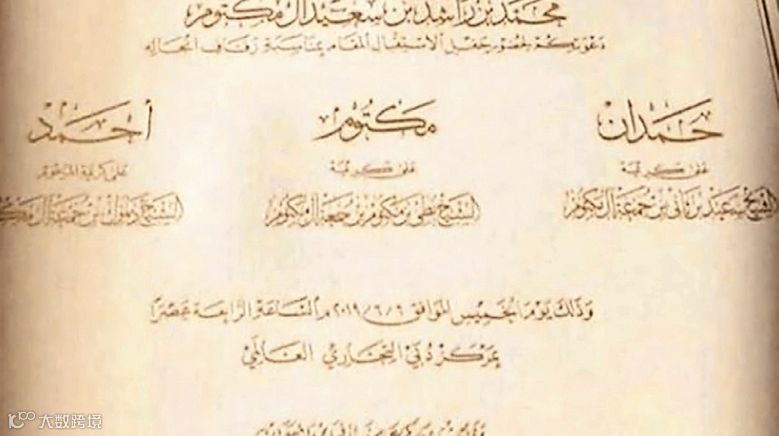 محمد بن راشد بن سعيد آل مكتوم
دعوتكم لحضور حفل الاستقبال المقام بمناسبة زفاف أنجاله
حمدان مكتوم أحمد
على كريمة على كريمة على كريمة المرحوم
الشيخ سعيد بن ثاني بن جمعة آل مكتوم الشيخ بطي بن مكتوم بن جمعة آل مكتوم الشيخ دلموك بن جمعة آل مكتوم
وذلك يوم الخميس الموافق ٢٠١٩/٦/٦ م الساعة الرابعة عصراً
بمركز دبي التجاري العالمي
大数跨境